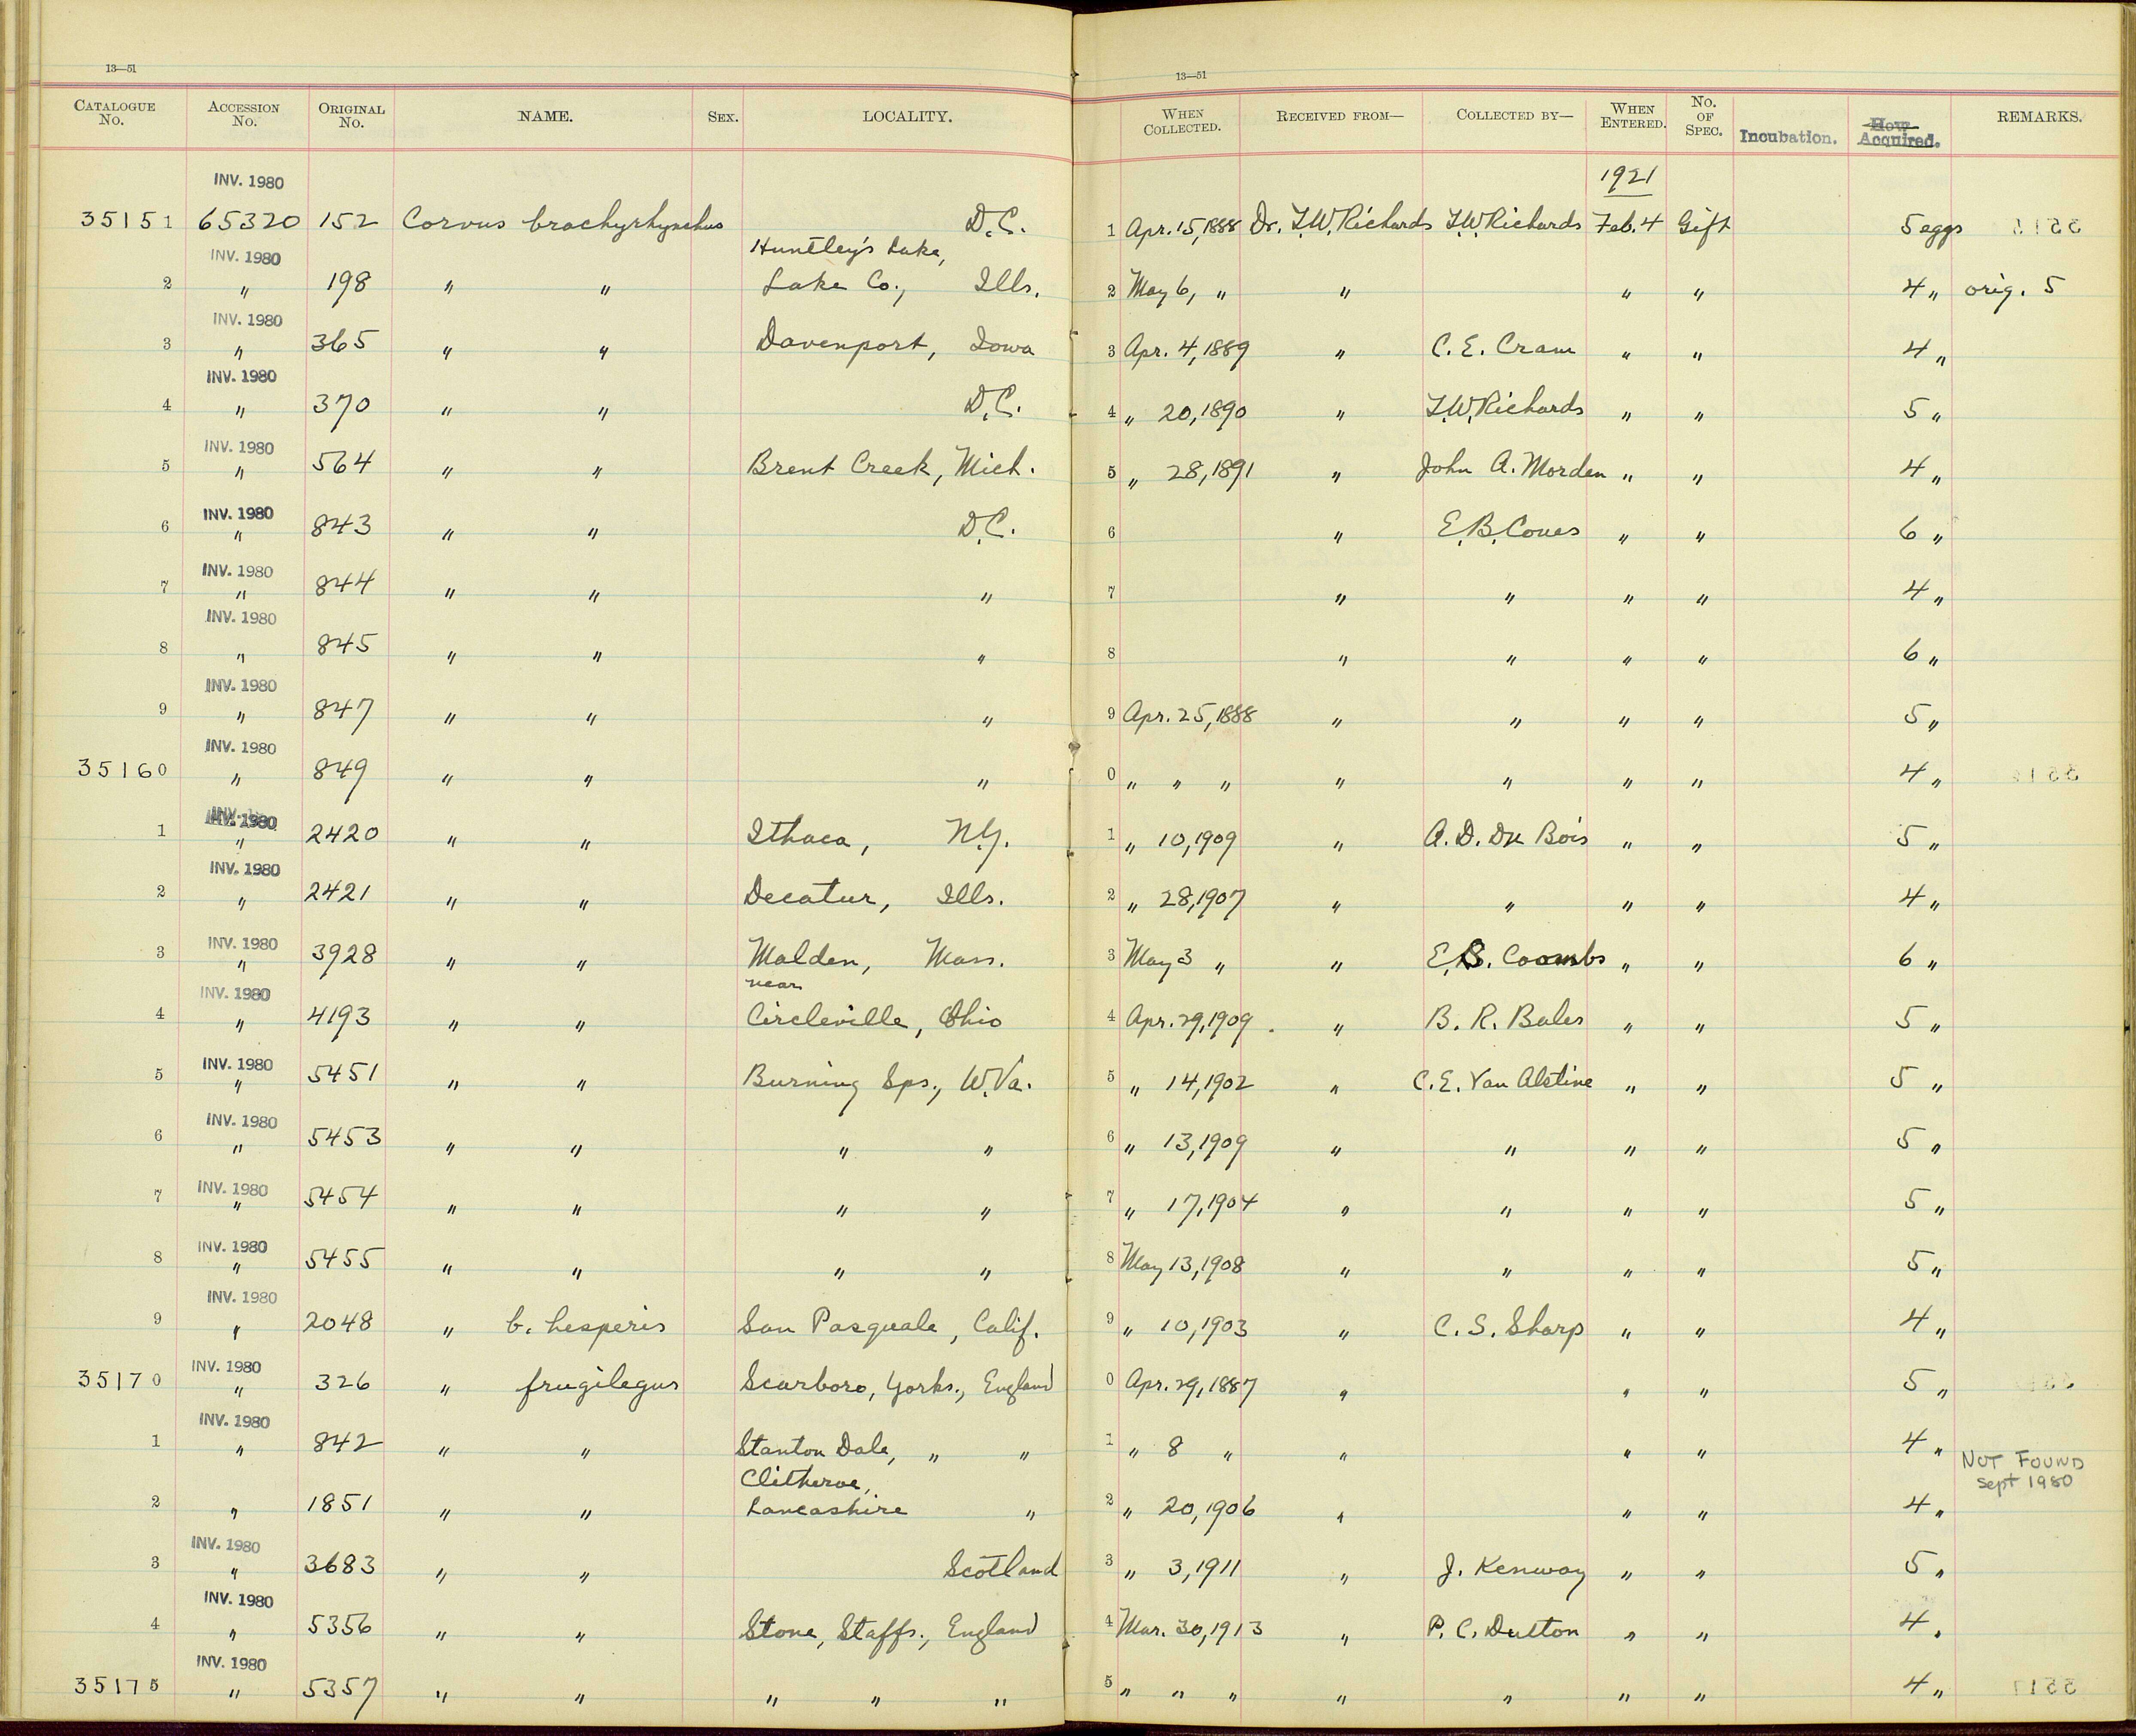 13—51 13—51
CATALOGUE No. ACCESSION No. ORIGINAL No. NAME. SEX. LOCALITY. WHEN COLLECTED. RECEIVED FROM— COLLECTED BY— WHEN ENTERED. No. OF SPEC. Incubation. How Acquired. REMARKS.
INV. 1980 1921
35151 65320 152 Corvus brachyrhynchus D.C. 1 Apr. 15, 1888 Dr. T.W. Richards T.W. Richards Feb. 4 Gift 5 eggs
INV. 1980 Huntley's Lake,
2 " 198 " " Lake Co., Ills. 2 May 6, " " " " 4 " orig. 5
INV. 1980
3 " 365 " " Davenport, Iowa 3 Apr. 4, 1889 " C. E. Cram " " 4 "
INV. 1980
4 " 370 " " D.C. 4 " 20, 1890 " T.W. Richards " " 5 "
INV. 1980
5 " 564 " " Brent Creek, Mich. 5 " 28, 1891 " John A. Morden " " 4 "
INV. 1980
6 " 843 " " D.C. 6 " E.B. Coues " " 6 "
INV. 1980
7 " 844 " " " 7 " " " " 4 "
INV. 1980
8 " 845 " " " 8 " " " " 6 "
INV. 1980
9 " 847 " " " 9 Apr. 25, 1888 " " " " 5 "
INV. 1980
35160 " 849 " " " 0 " " " " " " " 4 "
INV. 1980
1 " 2420 " " Ithaca, N.Y. 1 " 10, 1909 " A. D. Du Bois " " 5 "
INV. 1980
2 " 2421 " " Decatur, Ills. 2 " 28, 1907 " " " " 4 "
INV. 1980
3 " 3928 " " Malden, Mass. 3 May 3 " " E.S. Coombs " " 6 "
INV. 1980 near
4 " 4193 " " Circleville, Ohio 4 Apr. 29, 1909. " B. R. Bales " " 5 "
INV. 1980
5 " 5451 " " Burning Sps., W.Va. 5 " 14, 1902 " C. E. Van Alstine " " 5 "
INV. 1980
6 " 5453 " " " " 6 " 13, 1909 " " " " 5 "
INV. 1980
7 " 5454 " " " " 7 " 17, 1904 " " " " 5 "
INV. 1980
8 " 5455 " " " " 8 May 13, 1908 " " " " 5 "
INV. 1980
9 " 2048 " b. hesperis San Pasquale, Calif. 9 " 10, 1903 " C. S. Sharp " " 4 "
INV. 1980
35170 " 326 " frugilegus Scarboro, Yorks., England 0 Apr. 29, 1887 " " " 5 "
INV. 1980
1 " 842 " " Stanton Dale, " " 1 " 8 " " " " 4 "
Clitheroe, NOT FOUND
2 " 1851 " " Lancashire " 2 " 20, 1906 " " " 4 " Sept 1980
INV. 1980
3 " 3683 " " Scotland 3 " 3, 1911 " J. Kenway " " 5 "
INV. 1980
4 " 5356 " " Stone, Staffs., England 4 Mar. 30, 1913 " P. C. Dutton " " 4 "
INV. 1980
35175 " 5357 " " " " " 5 " " " " " " " 4 "